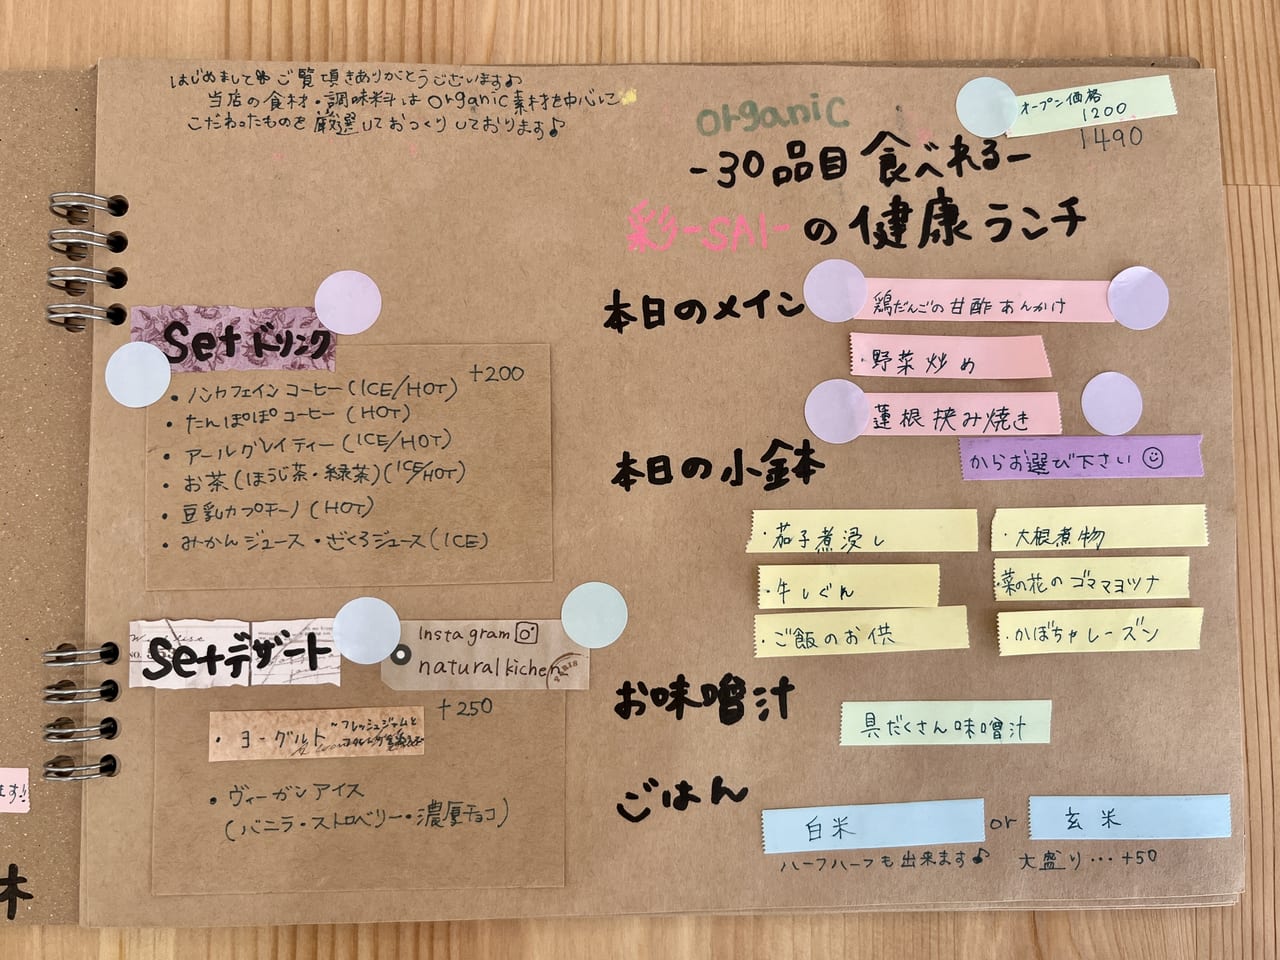 はじめまして❀ご覧頂きありがとうございます♪
当店の食材・調味料はOrganic素材を中心に
こだわったものを厳選しておつくりしております♪
Setドリンク
+200
・ノンカフェインコーヒー(ICE/HOT)
・たんぽぽコーヒー(HOT)
・アールグレイティー(ICE/HOT)
・お茶(ほうじ茶・緑茶)(ICE/HOT)
・豆乳カプチーノ(HOT)
・みかんジュース・ざくろジュース(ICE)
Setデザート
Instagram
naturalkichen
+250
・ヨーグルト
~フレッシュジャムと
・ヴィーガンアイス
(バニラ・ストロベリー・濃厚チョコ)
ます!!
木
オープン価格
1200
1490
organic
-30品目食べれる-
彩-SAI-の健康ランチ
本日のメイン
鶏だんごの甘酢あんかけ
・野菜炒め
蓮根挟み焼き
からお選び下さい☺
本日の小鉢
・茄子煮浸し
・大根煮物
・牛しぐれ
・菜の花のゴママヨツナ
・ご飯のお供
・かぼちゃレーズン
お味噌汁
具だくさん味噌汁
ごはん
白米 or 玄米
ハーフハーフも出来ます♪ 大盛り…+50